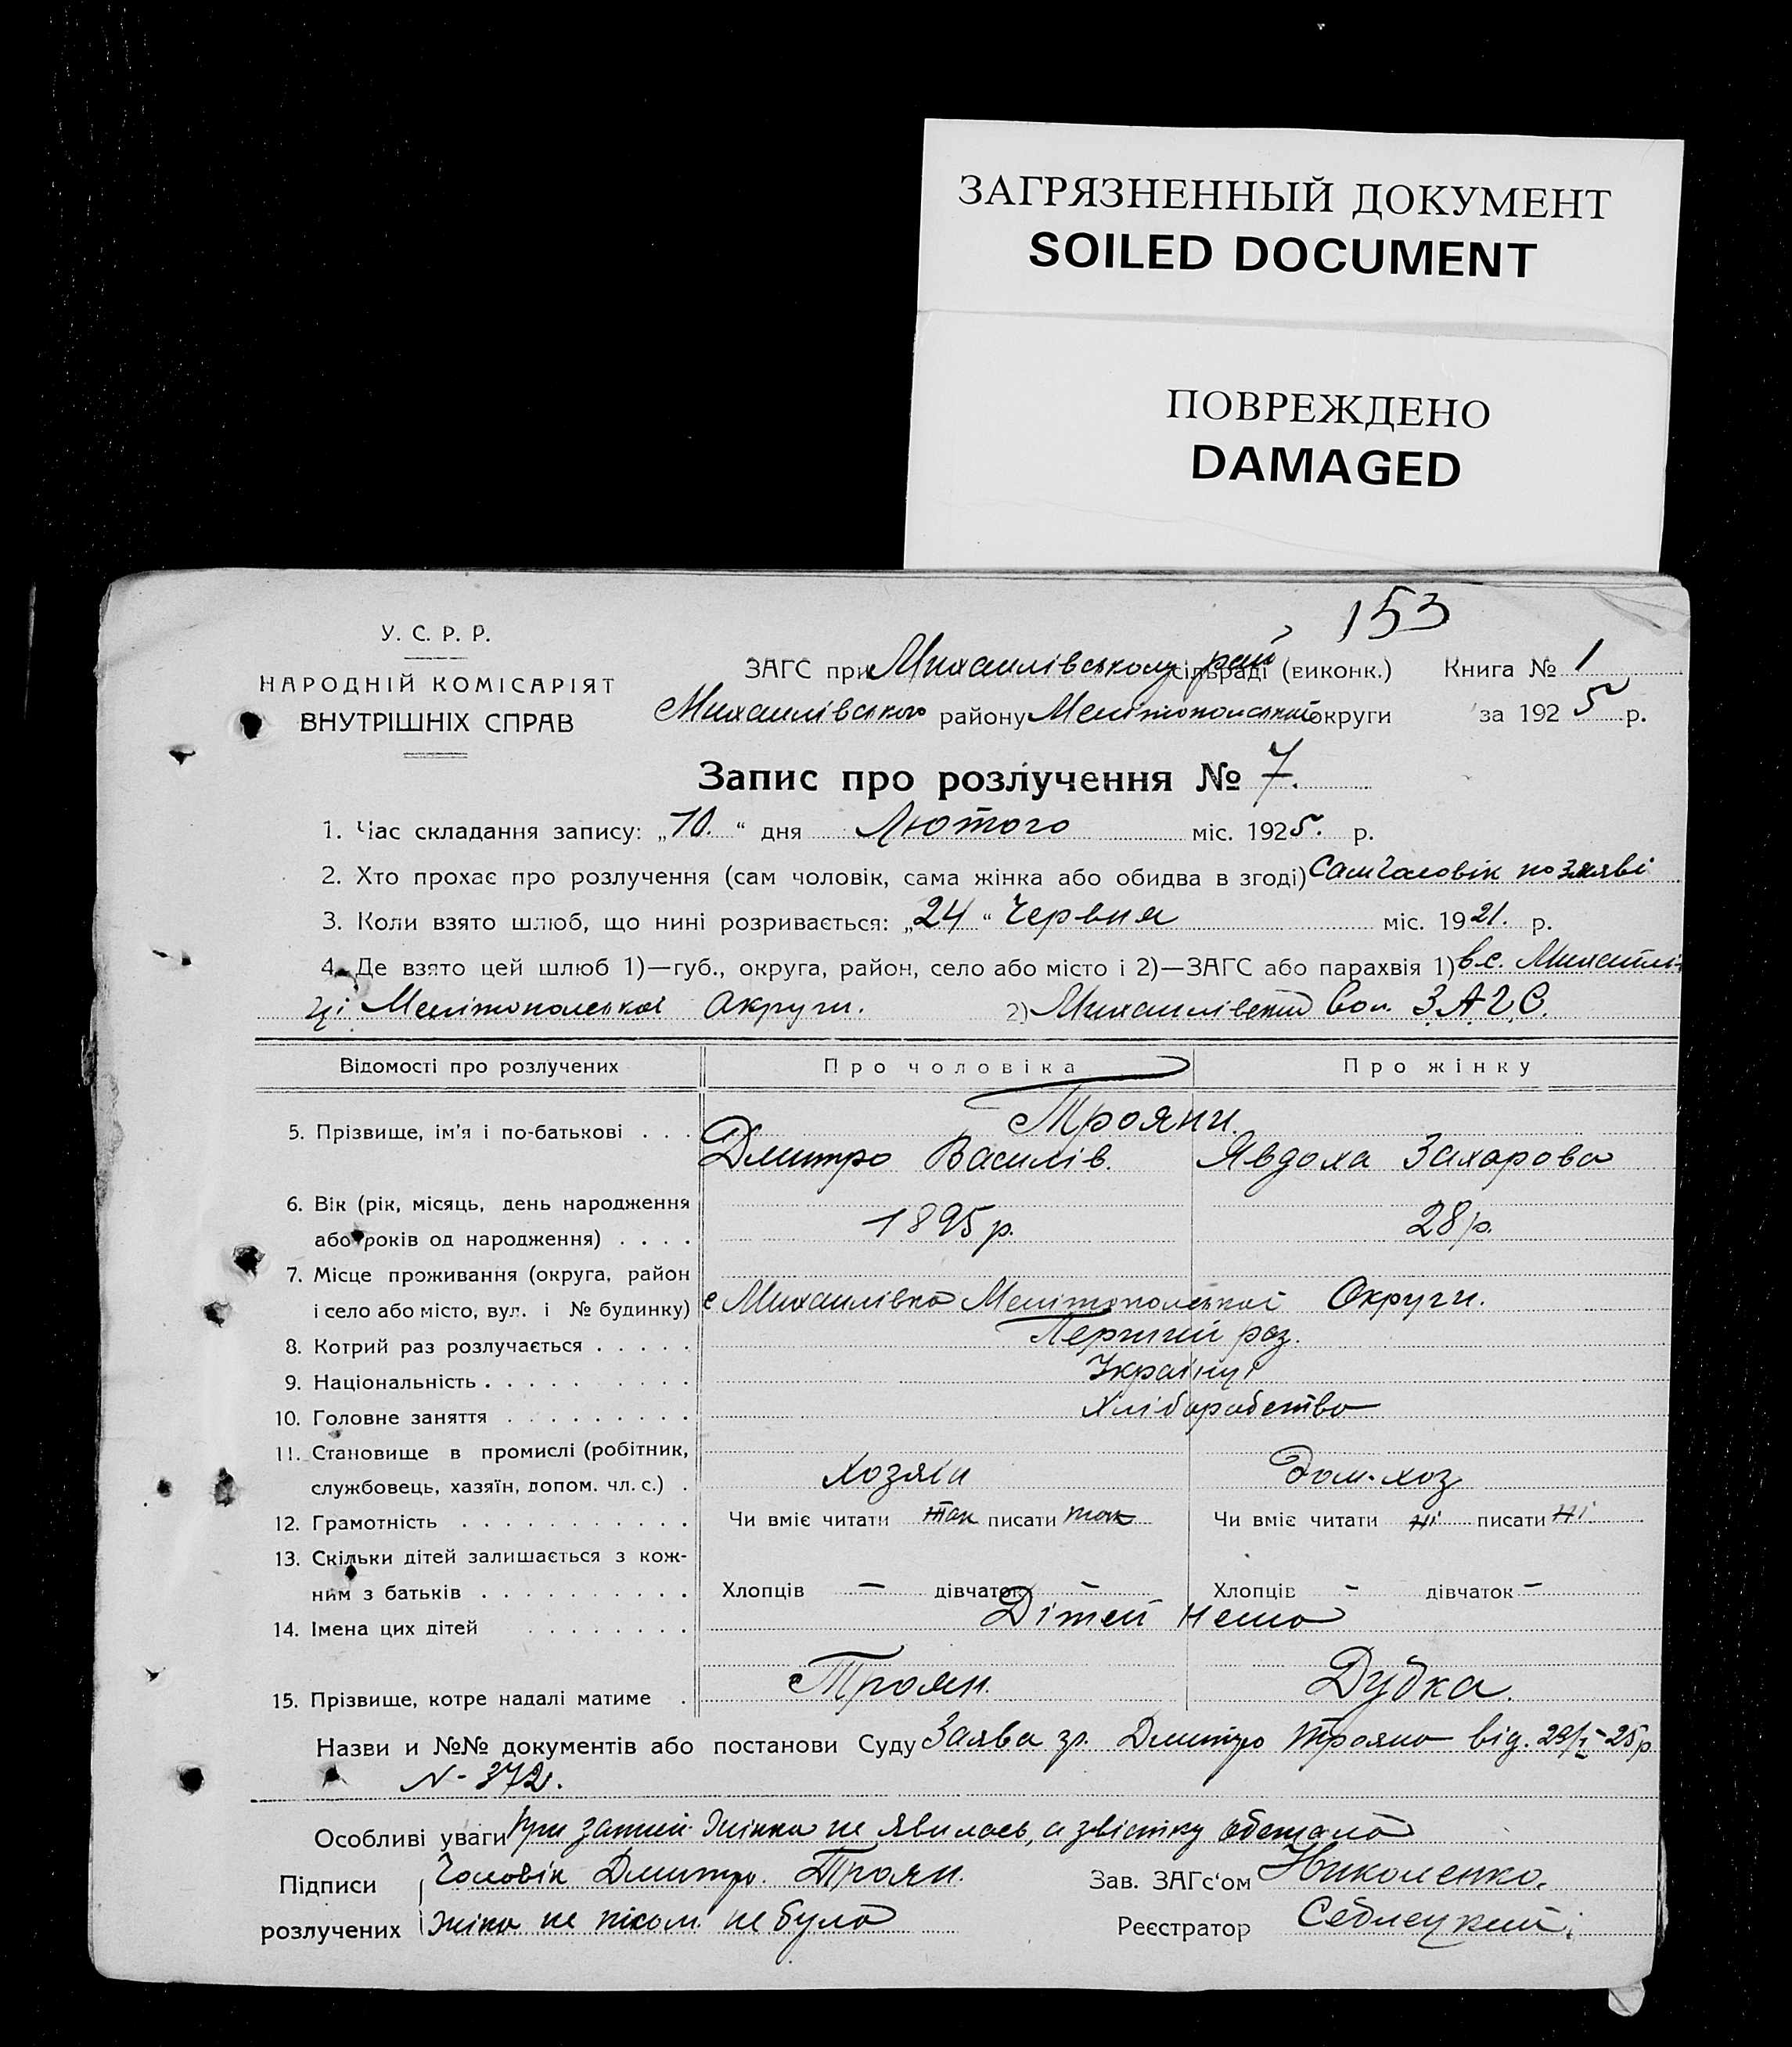 ЗАГРЯЗНЕННЫЙ ДОКУМЕНТ
SOILED DOCUMENT
ПОВРЕЖДЕНО
DAMAGED
153
У. С. Р. Р.
НАРОДНІЙ КОМІСАРІЯТ
ВНУТРІШНІХ СПРАВ
ЗАГС при Михайлівському рай сільраді (виконк.) Книга № 1
Михайлівського району Мелітопольської округи за 1925 р.
Запис про розлучення № 7.
1. Час складання запису: „10.“ дня Лютого міс. 1925. р.
2. Хто прохає про розлучення (сам чоловік, сама жінка або обидва в згоді) Сам Чоловік по заяві
3. Коли взято шлюб, що нині розривається: „24“ Червня міс. 1921. р.
4. Де взято цей шлюб 1)—губ., округа, район, село або місто і 2)—ЗАГС або парахвія 1) в с. Михайлів
ці Мелітопольскої Округи. 2) Михайлівский Вол. З.А.Г.С.
Відомості про розлучених Про чоловіка Про жінку
Трояни.
5. Прізвище, ім'я і по-батькові . . . Дмитро Василів. Явдоха Захарова
6. Вік (рік, місяць, день народження
або років од народження) . . . . 1895 р. 28 р.
7. Місце проживання (округа, район
і село або місто, вул. і № будинку) с Михайлівка Мелітопольскої Округи.
8. Котрий раз розлучається . . . . . Перший раз.
9. Національність . . . . . . . . . . Українці
10. Головне заняття . . . . . . . . . Хліборобство
11. Становище в промислі (робітник,
службовець, хазяїн, допом. чл. с.) . Хозяїн Дом. хоз
12. Грамотність . . . . . . . . . . . Чи вміє читати так писати так Чи вміє читати ні писати ні
13. Скільки дітей залишається з кож-
ним з батьків . . . . . . . . . . Хлопців — дівчаток — Хлопців - дівчаток —
14. Імена цих дітей . . . . . . . . Дітей нема
15. Прізвище, котре надалі матиме . Троян. Дубка.
Назви и №№ документів або постанови Суду Заява гр. Дмитро Трояна від. 29/I-25 р
N- 372.
Особливі уваги При запись жінка не явилась, а звістку
Підписи Чоловік Дмитро. Троян. Зав. ЗАГс'ом Николенко.
розлучених Жінка не писом. не була Реєстратор Седлецкий